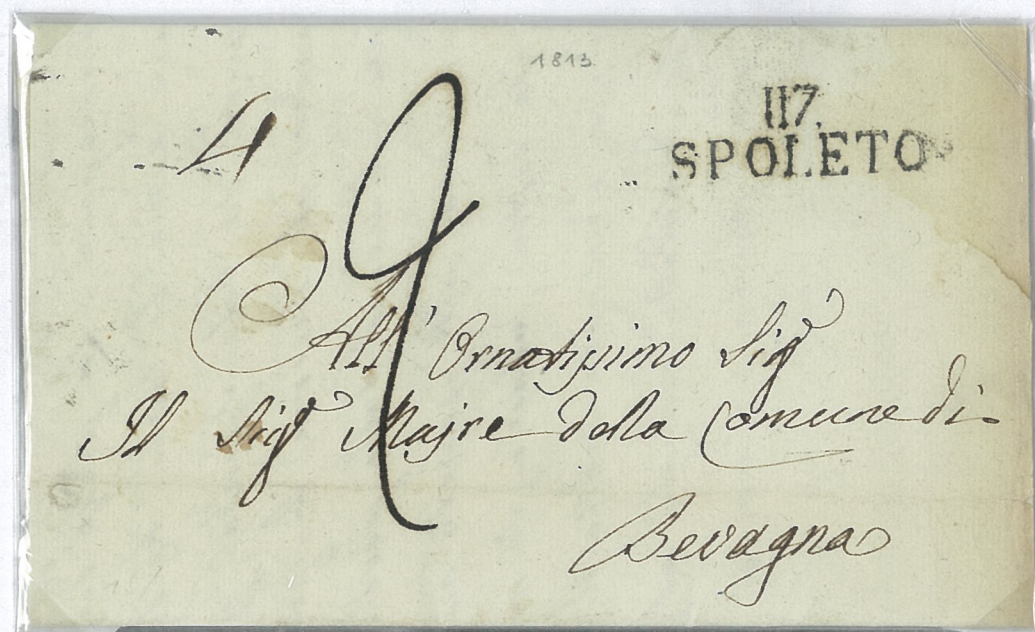 1813
117.
SPOLETO
4
2
All' Ornatissimo Sig
Il Sig Majre della Comune di
Bevagna